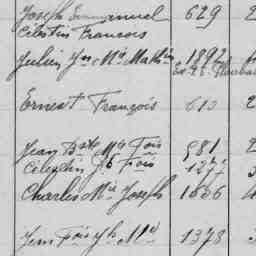 Joseph Emmanuel 629 2
Célestin Francois
Julien Jn Mie Mathin 1892
Ernest François 613 2
Jean Bte Mie Fois 981 2
Célestin Jh Fois 1277
Charles Mie Joseph 1606
Jean Fois Jh Mie 1378 3